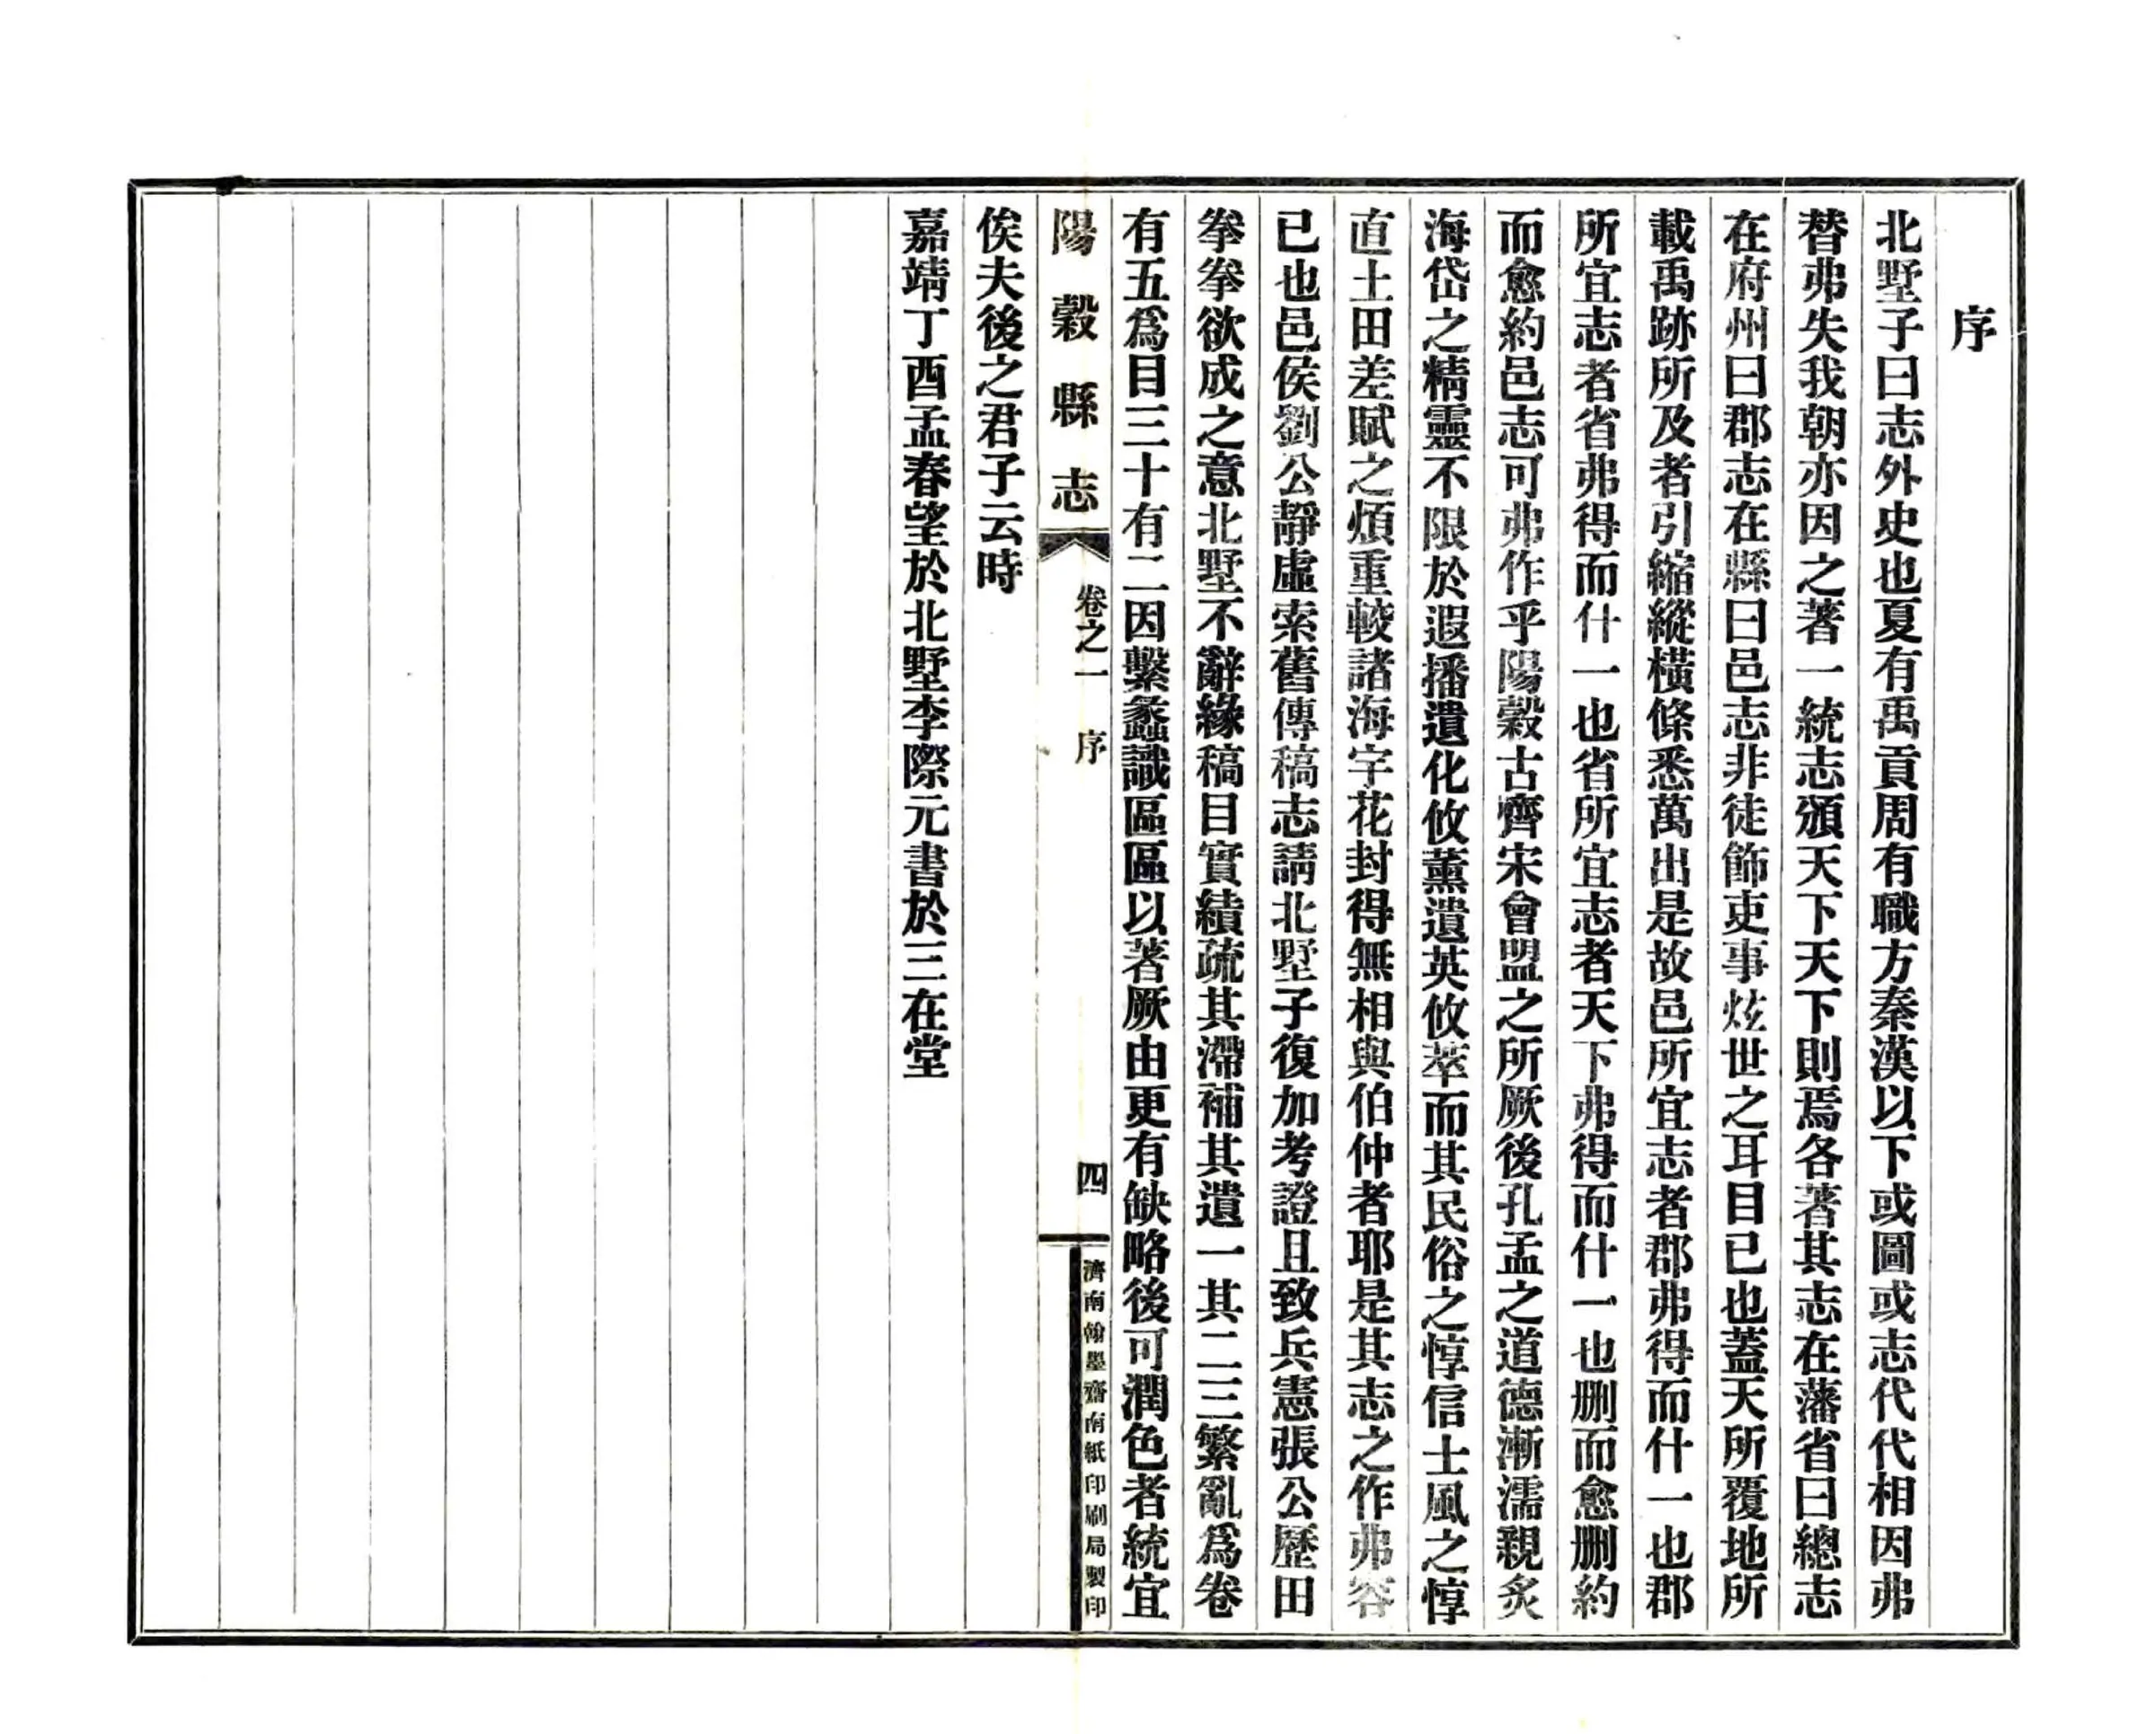 序
北墅子曰志外史也夏有禹貢周有職方秦漢以下或圖或志代代相因弗
替弗失我朝亦因之著一統志頒天下天下則焉各著其志在藩省曰總志
在府州曰郡志在縣曰邑志非徒飾吏事炫世之耳目已也蓋天所覆地所
載禹跡所及者引縮縱橫條悉萬出是故邑所宜志者郡弗得而什一也郡
所宜志者省弗得而什一也省所宜志者天下弗得而什一也刪而愈刪約
而愈約邑志可弗作乎陽穀古齊宋會盟之所厥後孔孟之道德漸濡親炙
海岱之精靈不限於遐播遺化攸薰遺英攸萃而其民俗之惇信士風之惇
直土田差賦之煩重較諸海宇花封得無相與伯仲者耶是其志之作弗容
已也邑侯劉公靜虛索舊傳稿志請北墅子復加考證且致兵憲張公歷田
拳拳欲成之意北墅不辭緣稿目實績疏其滯補其遺一其二三繁亂為卷
有五為目三十有二因繫蠡識區區以著厥由更有缺略後可潤色者統宜
陽穀縣志
卷之一 序
四
濟南翰墨齋南紙印刷局製印
俟夫後之君子云時
嘉靖丁酉孟春望於北墅李際元書於三在堂